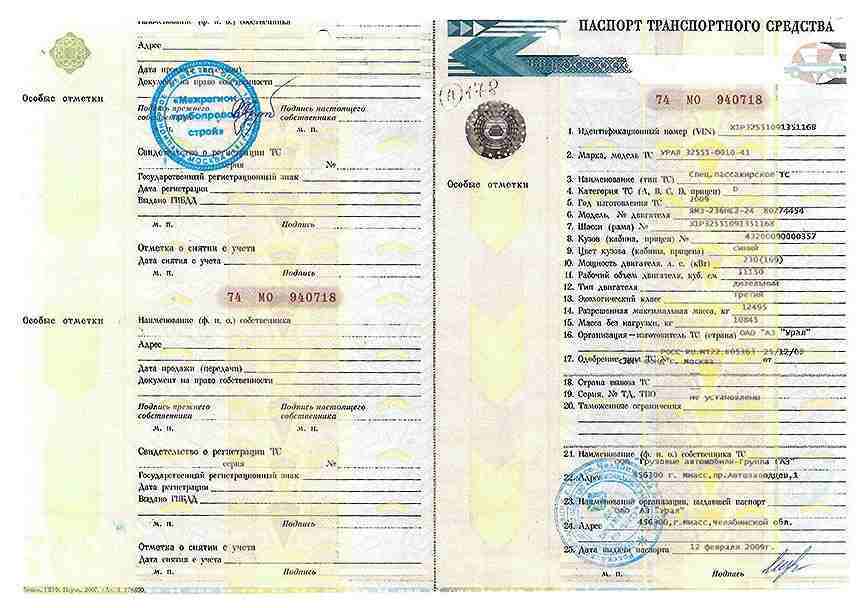 Наименование (ф. и. о.) собственника
Адрес
Дата продажи (передачи)
Документ на право собственности
Особые отметки
Подпись прежнего собственника
Подпись настоящего собственника
м. п.
м. п.
«Межрегион
трубопровод
строй»
Свидетельство о регистрации ТС
серия №
Государственный регистрационный знак
Дата регистрации
Выдано ГИБДД
м. п. Подпись
Отметка о снятии с учета
Дата снятия с учета
м. п. Подпись
74 МО 940718
Особые отметки
Наименование (ф. и. о.) собственника
Адрес
Дата продажи (передачи)
Документ на право собственности
Подпись прежнего собственника
Подпись настоящего собственника
м. п.
м. п.
Свидетельство о регистрации ТС
серия №
Государственный регистрационный знак
Дата регистрации
Выдано ГИБДД
м. п. Подпись
Отметка о снятии с учета
Дата снятия с учета
м. п. Подпись
ПАСПОРТ ТРАНСПОРТНОГО СРЕДСТВА
74 МО 940718
Особые отметки
1. Идентификационный номер (VIN) X1P32551091351168
2. Марка, модель ТС УРАЛ 32551-0010-41
3. Наименование (тип ТС) Спец.пассажирское ТС
4. Категория ТС (А, В, С, D, прицеп) D
5. Год изготовления ТС 2009
6. Модель, № двигателя ЯМЗ-236НЕ2-24 80774454
7. Шасси (рама) № X1P32551091351168
8. Кузов (кабина, прицеп) № 43200090000357
9. Цвет кузова (кабины, прицепа) синий
10. Мощность двигателя, л. с. (кВт) 230(169)
11. Рабочий объем двигателя, куб. см 11150
12. Тип двигателя дизельный
13. Экологический класс третий
14. Разрешенная максимальная масса, кг 12495
15. Масса без нагрузки, кг 10845
16. Организация-изготовитель ТС (страна) ОАО "АЗ "Урал"
17. Одобрение типа ТС № г. Москва
18. Страна вывоза ТС
19. Серия, № ТД, ТПО
20. Таможенные ограничения не установлены
21. Наименование (ф. и. о.) собственника ТС
"Грузовые автомобили-Группа ГАЗ"
22. Адрес 456300 г. Миасс,пр.Автозаводцев,1
23. Наименование организации, выдавшей паспорт
ОАО "АЗ "Урал"
24. Адрес 456300,г.Миасс,Челябинской обл.
25. Дата выдачи паспорта 12 февраля 2009г.
м. п. Подпись